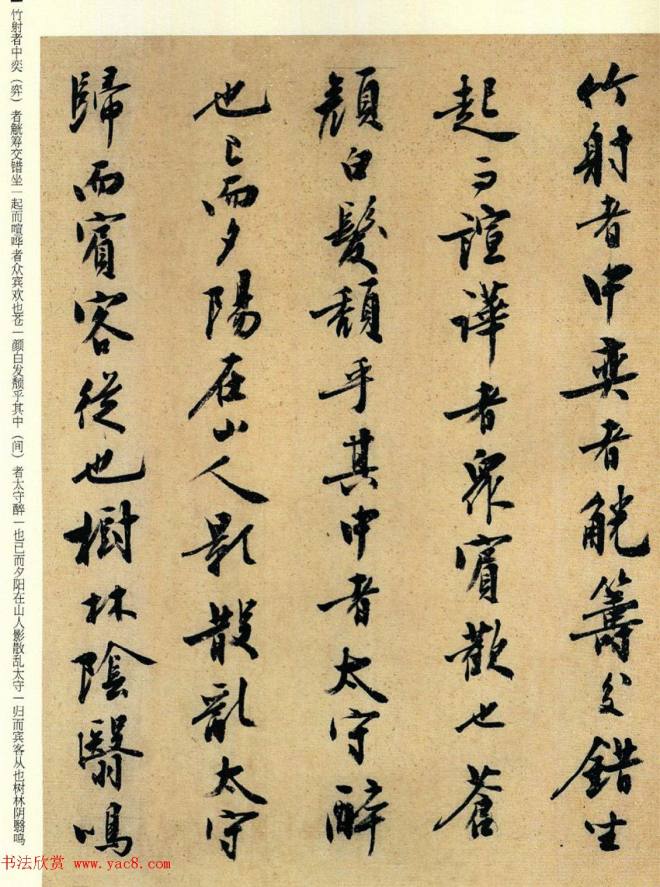 竹射者中奕者觥籌交錯坐
起而諠譁者眾賓歡也蒼
顏白髮頹乎其中者太守醉
也已而夕陽在山人影散亂太守
歸而賓客從也樹林陰翳鳴
竹射者中奕（弈）者觥筹交错坐一起而喧哗者众宾欢也苍一颜白发颓乎其中（间）者太守醉一也已而夕阳在山人影散乱太守一归而宾客从也树林阴翳鸣
书法欣赏 www.yac8.com